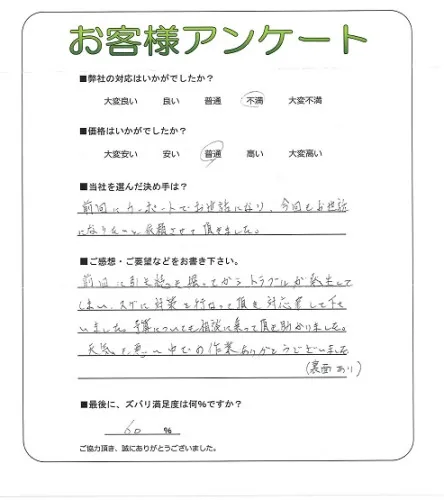 お客様アンケート
■弊社の対応はいかがでしたか?
大変良い 良い 普通 不満 大変不満
■価格はいかがでしたか?
大変安い 安い 普通 高い 大変高い
■当社を選んだ決め手は?
前回にカーポートでお世話になり、今回もお世話
になりたいと依頼させて頂きました。
■ご感想・ご要望などをお書き下さい。
前回に引き続き 掘ってからトラブルが発生して
しまい、スグに対策を行なって頂き対応策して下さ
いました。予算についても相談に乗って頂き助かりました。
天気の悪い中での作業ありがとうございました
(裏面あり)
■最後に、ズバリ満足度は何%ですか?
60 %
ご協力頂き、誠にありがとうございました。